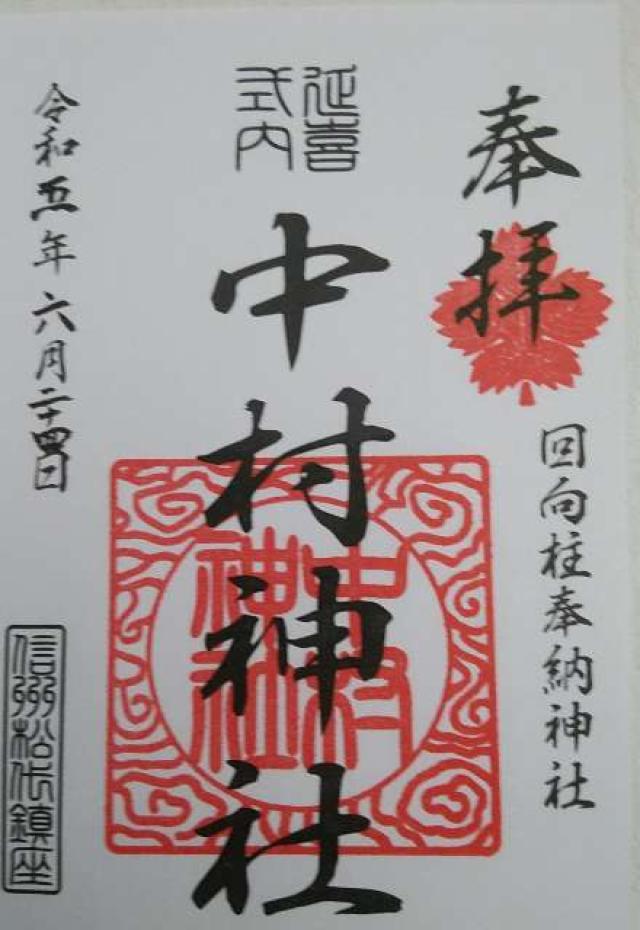 奉拝
回向柱奉納神社
延喜
式内
中村神社
中村
神社
令和五年六月二十四日
信州松代鎮座